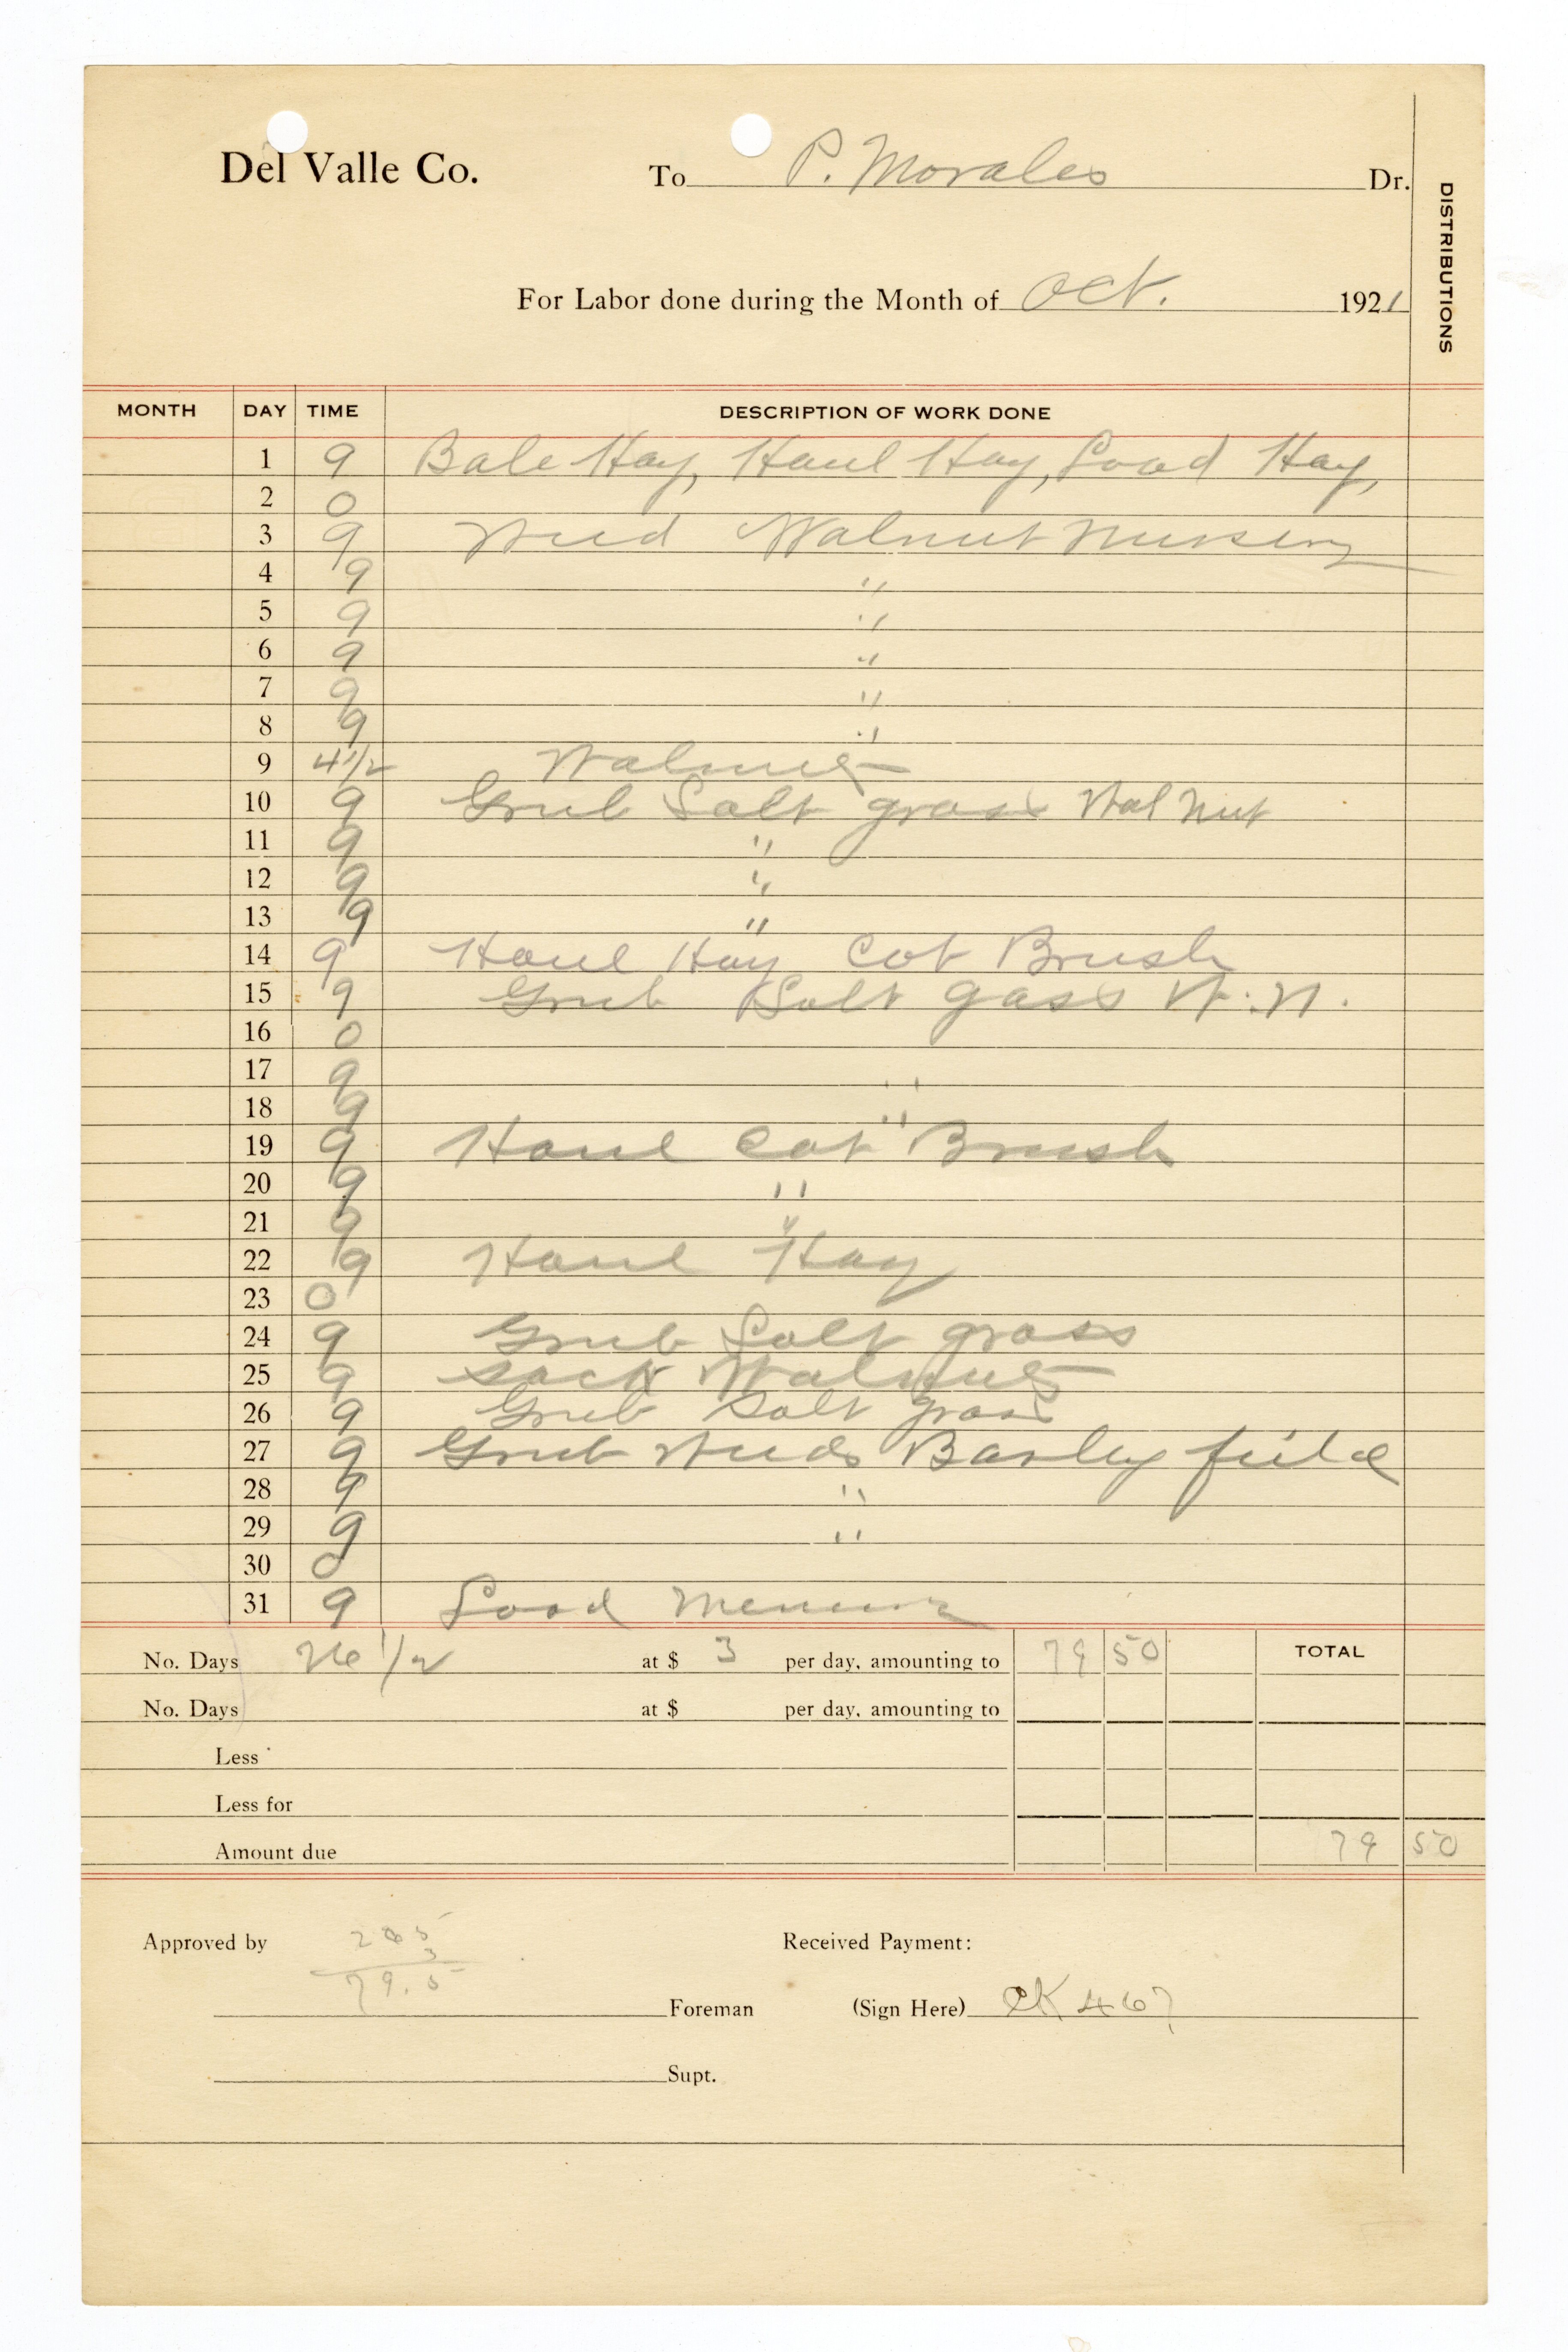 Del Valle Co. To P. Morales Dr.
DISTRIBUTIONS
For Labor done during the Month of Oct. 1921
MONTH DAY TIME DESCRIPTION OF WORK DONE
1 9 Bale Hay, Haul Hay, Load Hay,
2 0
3 9 Weed Walnut Nursery
4 9 "
5 9 "
6 9 "
7 9 "
8 9 "
9 4 1/2 Walnuts
10 9 Grub Salt grass Wal Nut
11 9 "
12 9 "
13 9 "
14 9 Haul Hay Cot Brush
15 9 Grub Salt gass W. N.
16 0
17 9 "
18 9 "
19 9 Haul Cot Brush
20 9 "
21 9 "
22 9 Haul Hay
23 0
24 9 Grub Salt grass
25 9 Sack Walnuts
26 9 Grub Salt grass
27 9 Grub Weeds Barley field
28 9 "
29 9 "
30 0
31 9 Load
No. Days 26 1/2 at $ 3 per day, amounting to 79 50 TOTAL
No. Days at $ per day, amounting to
Less
Less for
Amount due 79 50
Approved by 265 Received Payment:
3
79.5
Foreman (Sign Here) CK 467
Supt.